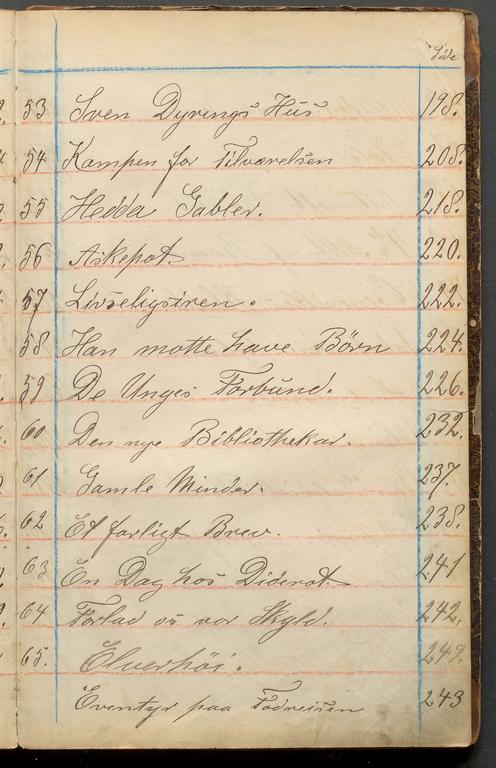 Side
53 Sven Dyrings Hus 198.
54 Kampen for Tilværelsen 208.
55 Hedda Gabler. 218.
56 Askepot. 220.
57 Livseligsiren. 222.
58 Han motte have Börn 224.
59 De Unges Forbund. 226.
60 Den nye Bibliothekar. 232.
61 Gamle Minder. 237.
62 Et farligt Brev. 238.
63 En Dag hos Diderot. 241
64 Forlad os vor Skyld. 242.
65. Elverhöi. 249.
Eventyr paa Fodreisen 243